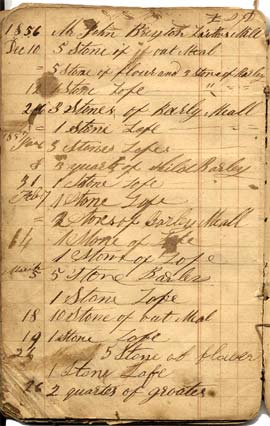 £ s D
1856 Mr John Bryson Mill
Dec 10 5 Stone of out Meal
5 Stone of flour and 3 Stone of Barley
12 1 Stone Lofe
24 3 Stones of Barly Meall
1 Stone Lofe
1857 3 Stones Lofe
8 3 quart of Barley
31 1 Stone Lofe
Feb 7 1 Stone Lofe
2 Stones of Barley Meall
14 1 Stone of Lofe
1 Stone of Lofe
March 5 5 Stone Barley
1 Stone Lofe
18 10 Stone of out Meal
19 1 Stone Lofe
22 5 Stone of flower
1 Stone Lofe
26 2 quarter of groates